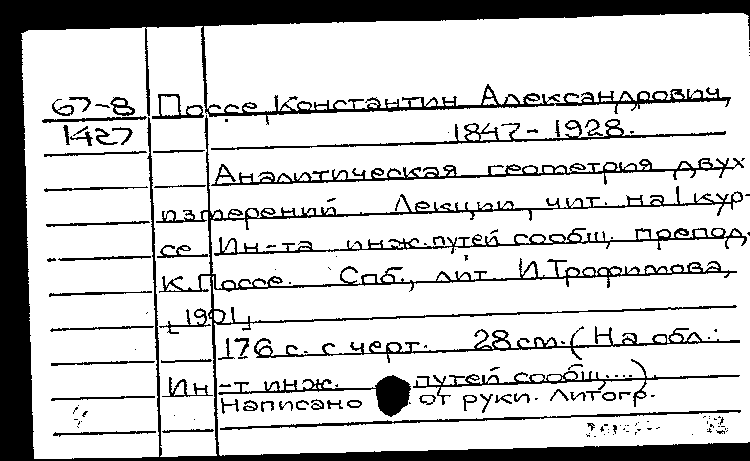 67-8 Поссе, Константин Александрович,
1427 1847-1928.
Аналитическая геометрия двух
измерений. Лекции, чит. на I кур-
се Ин-та инж. путей сообщ. препод.
К. Поссе. Спб., лит. И. Трофимова,
[1901]
176 с. с черт. 28 см. (На обл.:
Ин-т инж. путей сообщ....).
Написано от руки. Литогр.